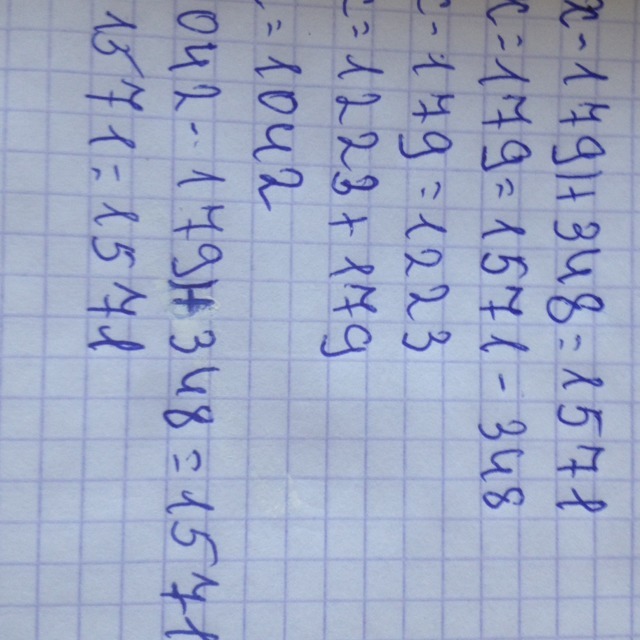 x-179)+348=1571
x-179=1571-348
-179=1223
=1223+179
=1042
042-179)+348=1571
1571=1571